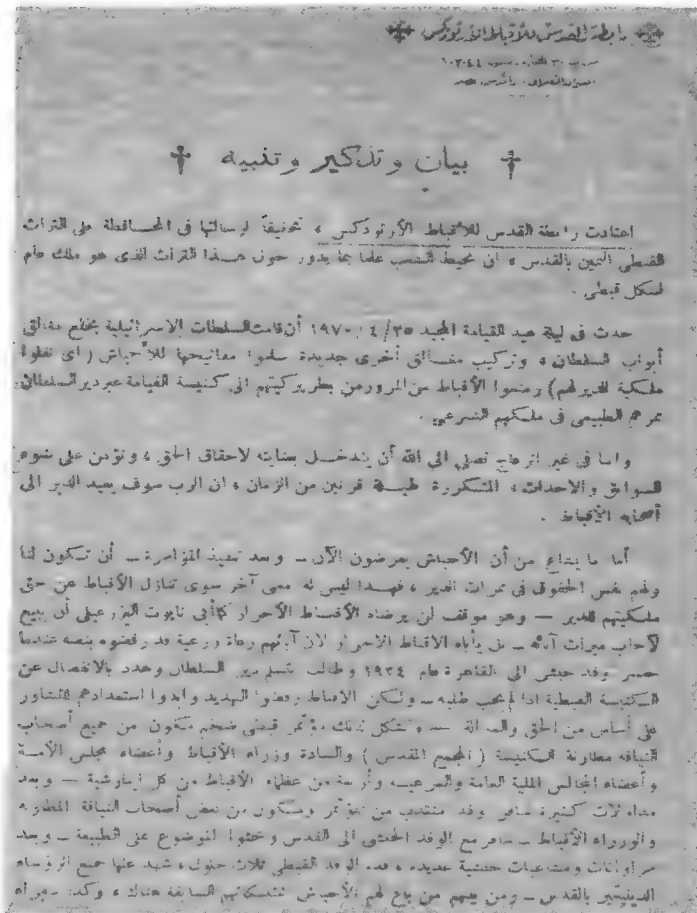 رابطة القدس للأقباط الأرثوذكس
† بيان وتذكير وتنبيه †
اعتادت رابطة القدس للأقباط الأرثوذكس ، تحقيقاً لرسالتها فى المحافظة على التراث
القبطى الثمين بالقدس ، ان تحيط الشعب علما بما يدور حول هذا التراث الذى هو ملك عام
لكل قبطى .
حدث فى ليلة عيد القيامة المجيد ٢٥/٤/١٩٧٠ أن قامت السلطات الاسرائيلية بخلع مغالق
أبواب السلطان ، وتركيب مغالق أخرى جديدة سلموا مفاتيحها للأحباش (أى نقلوا
ملكية الدير لهم) ومنعوا الأقباط من المرور من بطريركيتهم الى كنيسة القيامة عبر دير السلطان
ممرهم الطبيعى فى ملكهم الشرعى .
واننا فى غير انزعاج نصلى الى الله أن يتدخل بعنايته لاحقاق الحق ، ونؤمن على ضوء
السوابق والاحداث ، المتكررة طيلة قرنين من الزمان ، ان الرب سوف يعيد الدير الى
أصحابه الأقباط .
أما ما يشاع من أن الأحباش يعرضون الآن ــ وبعد تنفيذ المؤامرة ــ أن تكون لنا
ولهم نفس الحقوق فى ممرات الدير ، فهذا ليس له معنى آخر سوى تنازل الأقباط عن حق
ملكيتهم للدير — وهو موقف لن يرضاه الأقباط الأحرار كما أبى نابوت اليزرعيلى أن يبيع
لآخاب ميراث آبائه ــ بل يأباه الاقباط الاحرار لان آبائهم رعاة ورعية قد رفضوه بنصه عندما
حضر وفد حبشى الى القاهرة عام ١٩٢٤ وطالب بتسلم دير السلطان وهدد بالانفصال عن
الكنيسة القبطية اذا لم يجب طلبه ــ ولكن الاقباط رفضوا التهديد وابدوا استعدادهم للتشاور
على أساس من الحق والعدالة — وتشكل لذلك مؤتمر قبطى ضخم تكون من جميع أصحاب
النيافة مطارنة الكنيسة (المجمع المقدس) والسادة وزراء الأقباط وأعضاء مجلس الأمة
وأعضاء المجالس الملية العامة والفرعية وأربعة من عظماء الأقباط من كل ابيارشية — وبعد
مداولات كثيرة سافر وفد منتدب من المؤتمر ومكون من بعض أصحاب النيافة المطارنة
والوزراء الأقباط ــ سافر مع الوفد الحبشى الى القدس وبحثوا الموضوع على الطبيعة ــ وبعد
مراوغات حبشية عديدة ، قدم الوفد القبطى ثلاث حلول ، شهد عنها جميع الرؤساء
الدينيين بالقدس ــ ومن بينهم من باع لهم الأحباش ممتلكاتهم السابقة هناك ،